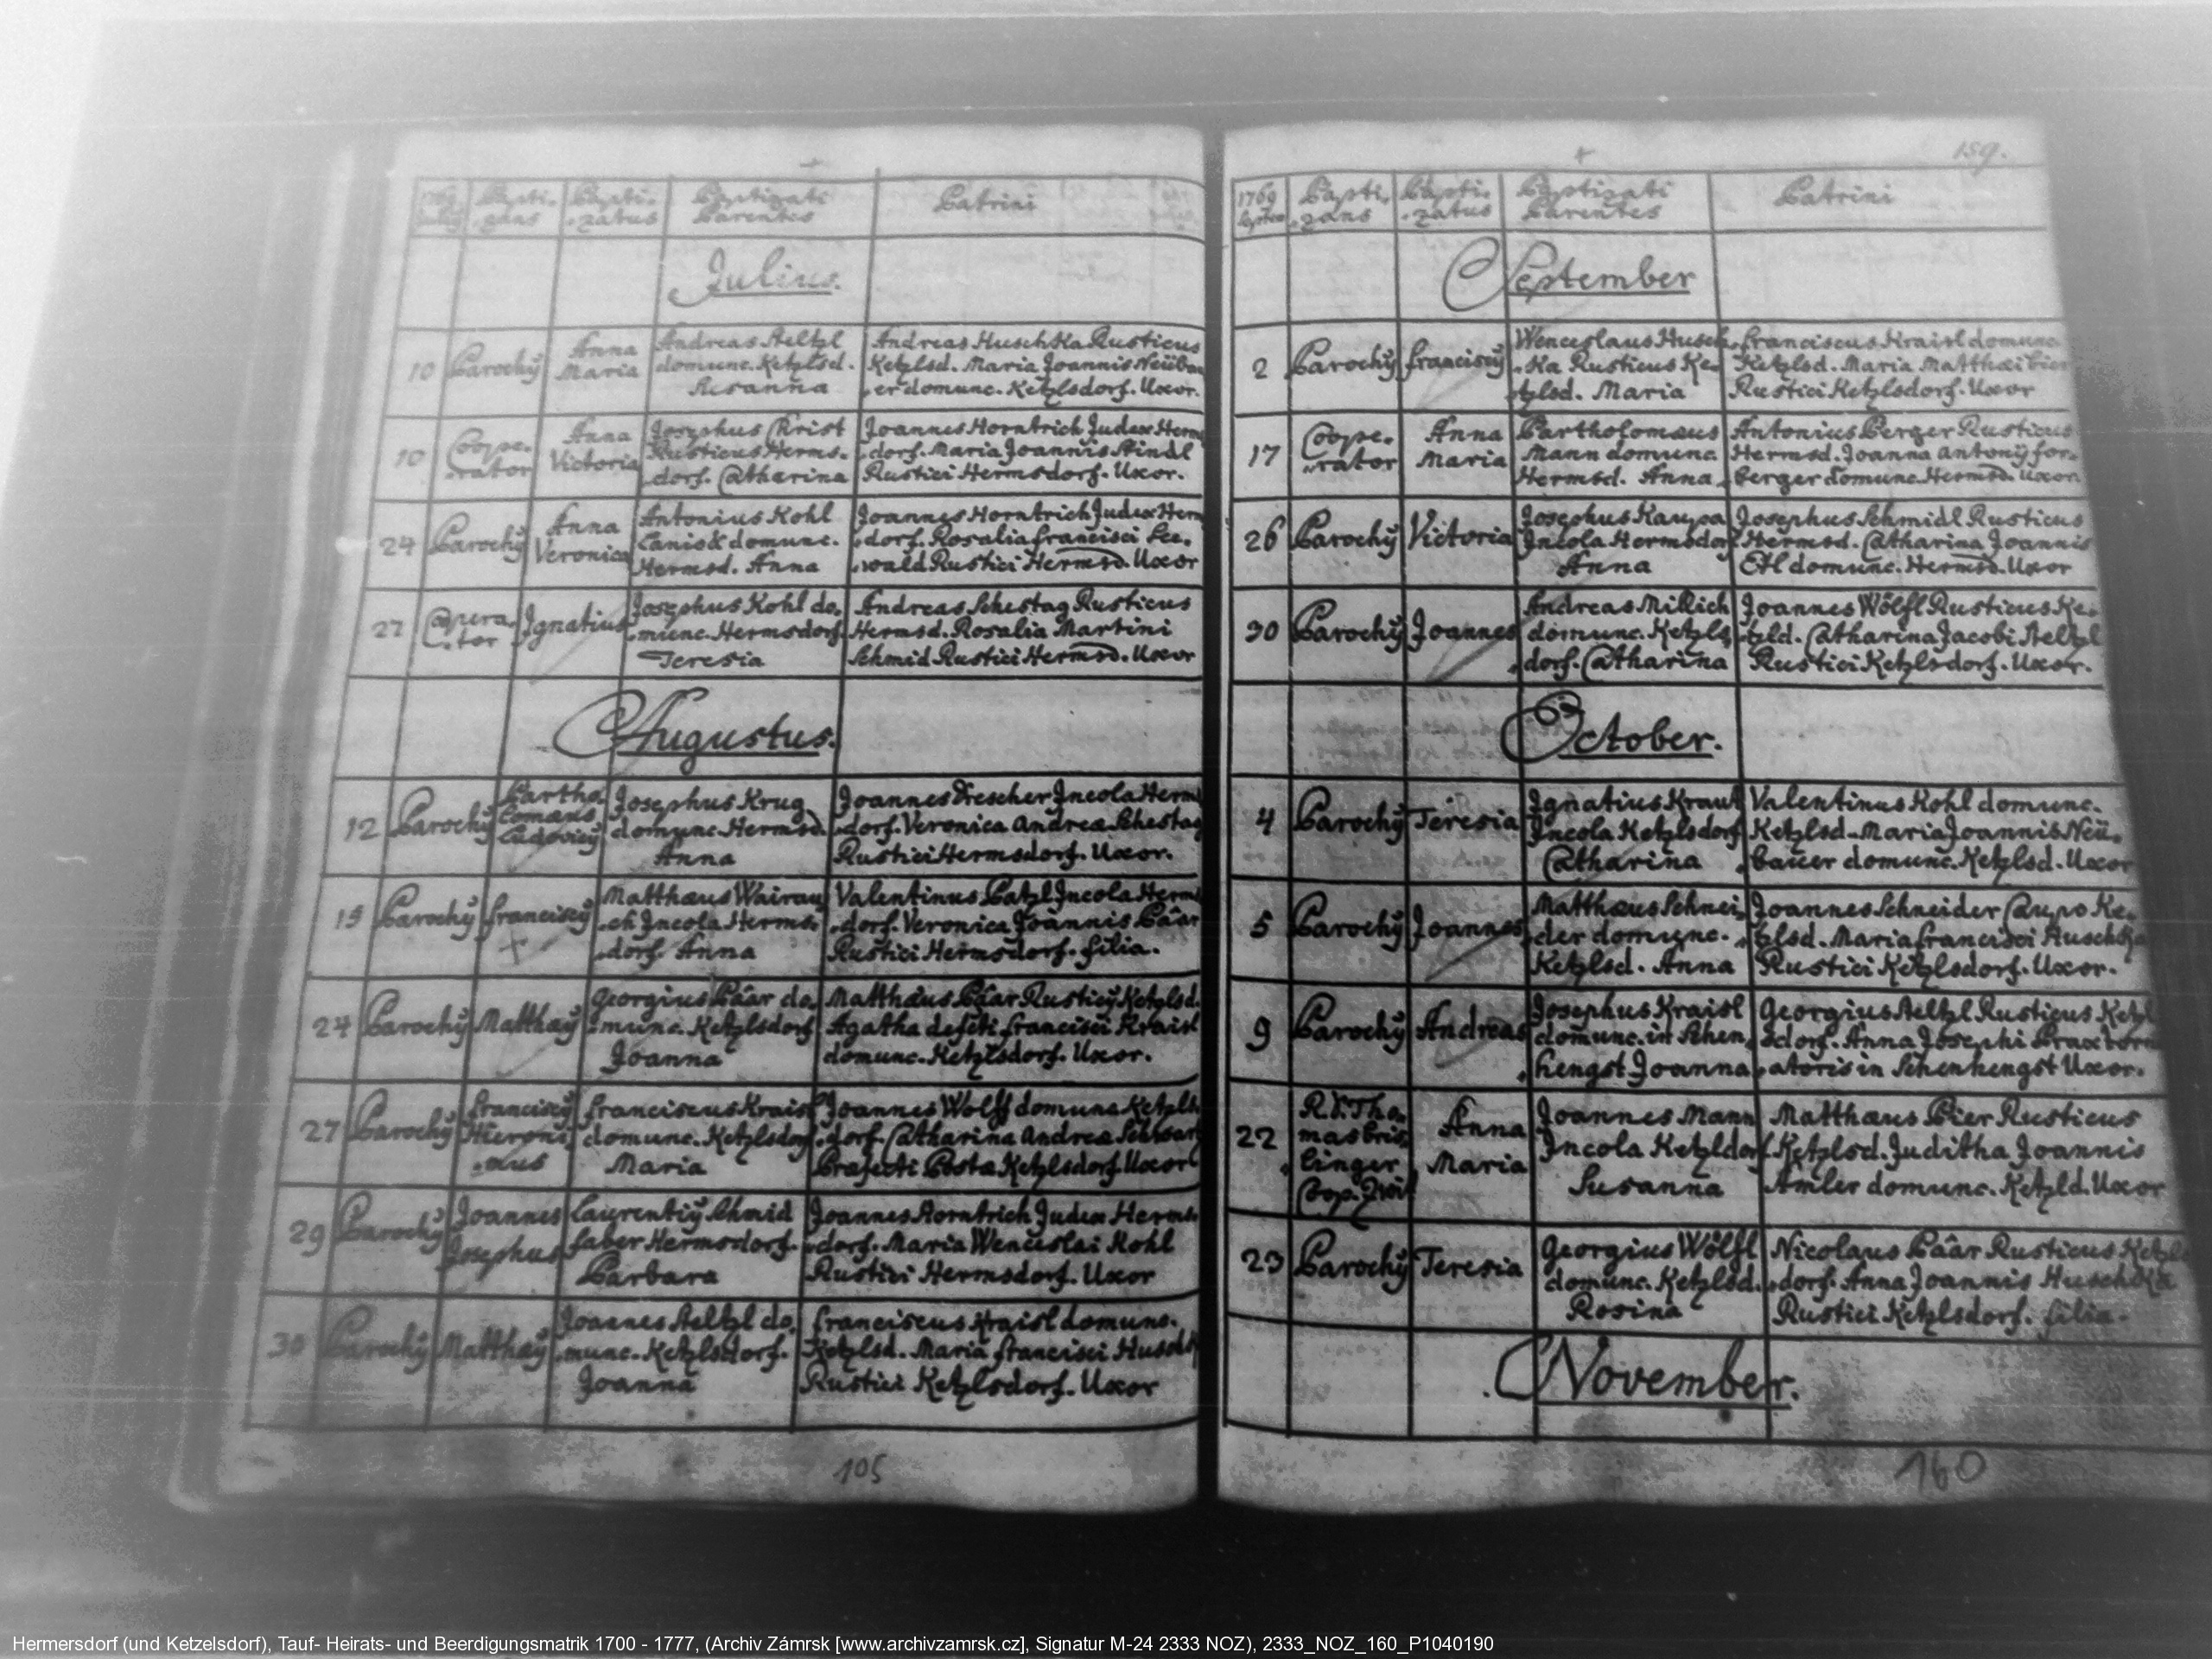 1769 Julij Bapti- zans Bapti- zatus Baptizati Parentes Patrini
Julius.
10 Parochy Anna Maria
Andreas Aeltzl
domunc. Ketzlsd.
Susanna
Andreas Huschka Rusticus
Ketzlsd. Maria Joannis Neüba
er domunc. Ketzlsdorf. Uxor.
10 Coope-
rator
Anna
Victoria
Josephus Christ
Rusticus Herms-
dorf. Catharina
Joannes Horntrich Judex Herms
dorf. Maria Joannis Kindl
Rustici Hermsdorf. Uxor.
24 Parochy
Anna
Veronica
Antonius Kohl
Lanio domunc.
Hermsd. Anna
Joannes Horntrich Judex Herm
dorf. Rosalia Francisci See-
wald Rustici Hermsd. Uxor
27 Coopera-
tor
Ignatius
Josephus Kohl do-
munc. Hermsdorf.
Teresia
Andreas Schestag Rusticus
Hermsd. Rosalia Martini
Schmid Rustici Hermsd. Uxor
Augustus.
12 Parochy
Bartho
lomæus
Ludovicy
Josephus Krug
domunc. Hermsd.
Anna
Joannes Drescher Incola Herms
dorf. Veronica Andreæ Schestag
Rustici Hermsdorf. Uxor.
15 Parochy Franciscy
Matthæus Wairau
ch Incola Herms-
dorf. Anna
Valentinus Patzl Incola Herms
dorf. Veronica Joannis Päar
Rustici Hermsdorf. filia.
24 Parochy Matthæy
Georgius Päar do-
munc. Ketzlsdorf
Joanna
Matthæus Päar Rusticy Ketzlsd.
Agatha defcti Francisci Kraisl
domunc. Ketzlsdorf. Uxor.
27 Parochy
Franciscy
Hieroni-
mus
Franciscus Kraisl
domunc. Ketzlsdorf
Maria
Joannes Wolff domunc. Ketzls
dorf. Catharina Andreæ Schwarz
Præfecti Postæ Ketzlsdorf. Uxor
29 Parochy
Joannes
Josephus
Laurentiy Schmid
faber Hermsdorf.
Barbara
Joannes Horntrich Judex Herms-
dorf. Maria Wenceslai Kohl
Rustici Hermsdorf. Uxor
30 Parochy Matthæy
Joannes Aeltzl do-
munc. Ketzlsdorf.
Joanna
Franciscus Kraisl domunc.
Ketzlsd. Maria Francisci Huschk
Rustici Ketzlsdorf. Uxor
105
159.
1769 Septem Bapti- zans Bapti- zatus Baptizati Parentes Patrini
September
2 Parochy Franciscy
Wenceslaus Husch
ka Rusticus Ke-
tzlsd. Maria
Franciscus Kraisl domunc.
Ketzlsd. Maria Matthæi Bier
Rustici Ketzlsdorf. Uxor
17 Coope-
rator
Anna
Maria
Bartholomæus
Mann domunc.
Hermsd. Anna
Antonius Berger Rusticus
Hermsd. Joanna Antony for-
berger domunc. Hermsd. Uxor
26 Parochy Victoria
Josephus Kaupa
Incola Hermsdorf
Anna
Josephus Schmidl Rusticus
Hermsd. Catharina Joannis
Etl domunc. Hermsd. Uxor
30 Parochy Joannes
Andreas Millich
domunc. Ketzls
dorf. Catharina
Joannes Wölfl Rusticus Ke-
tzld. Catharina Jacobi Aeltzl
Rustici Ketzlsdorf. Uxor.
October.
4 Parochy Teresia
Ignatius Kraut
Incola Ketzlsdorf
Catharina
Valentinus Kohl domunc.
Ketzlsd. Maria Joannis Neü-
bauer domunc. Ketzlsd. Uxor
5 Parochy Joannes
Matthæus Schnei-
der domunc.
Ketzlsd. Anna
Joannes Schneider Caupo Ke-
tzlsd. Maria Francisci Huschka
Rustici Ketzlsdorf. Uxor.
9 Parochy Andreas
Josephus Kraisl
domunc. in Schen-
hengst Joanna
Georgius Aeltzl Rusticus Ketzl
sdorf. Anna Josephi
atoris in Schenhengst Uxor.
22 R. D. Tho-
mas
linger
Coop.
Anna
Maria
Joannes Mann
Incola Ketzldorf
Susanna
Matthæus Bier Rusticus
Ketzlsd. Juditha Joannis
Amler domunc. Ketzld. Uxor
23 Parochy Teresia
Georgius Wölfl
domunc. Ketzlsd.
Rosina
Nicolaus Päar Rusticus Ketzls
dorf. Anna Joannis Huschka
Rustici Ketzlsdorf. filia.
November.
160
Hermersdorf (und Ketzelsdorf), Tauf- Heirats- und Beerdigungsmatrik 1700 - 1777, (Archiv Zámrsk [www.archivzamrsk.cz], Signatur M-24 2333 NOZ), 2333_NOZ_160_P1040190